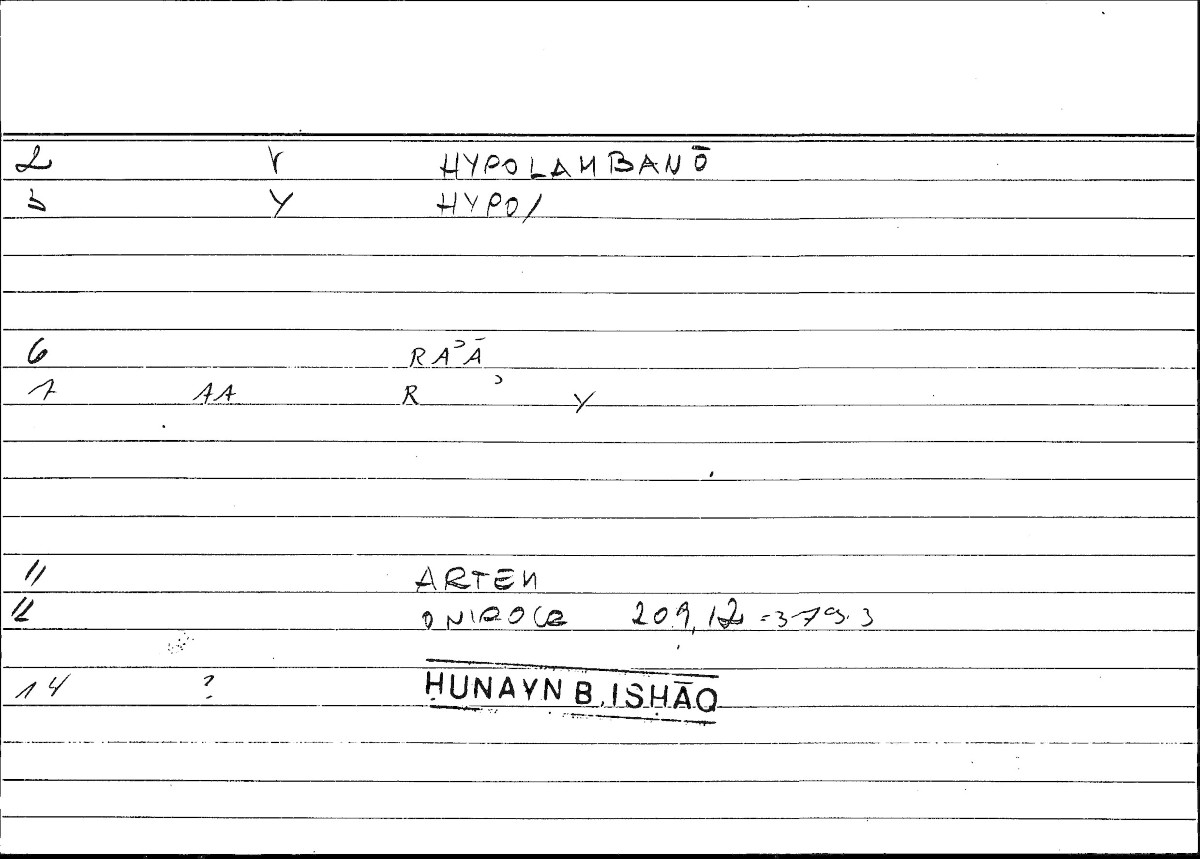 2 V HYPOLAMBANŌ
3 Y HYPO/
6 RAʾĀ
7 AA R ʾ Y
11 ARTEM
12 ONIROCR 209,12 = 379.3
14 ? ḤUNAYN B. ISḤĀQ